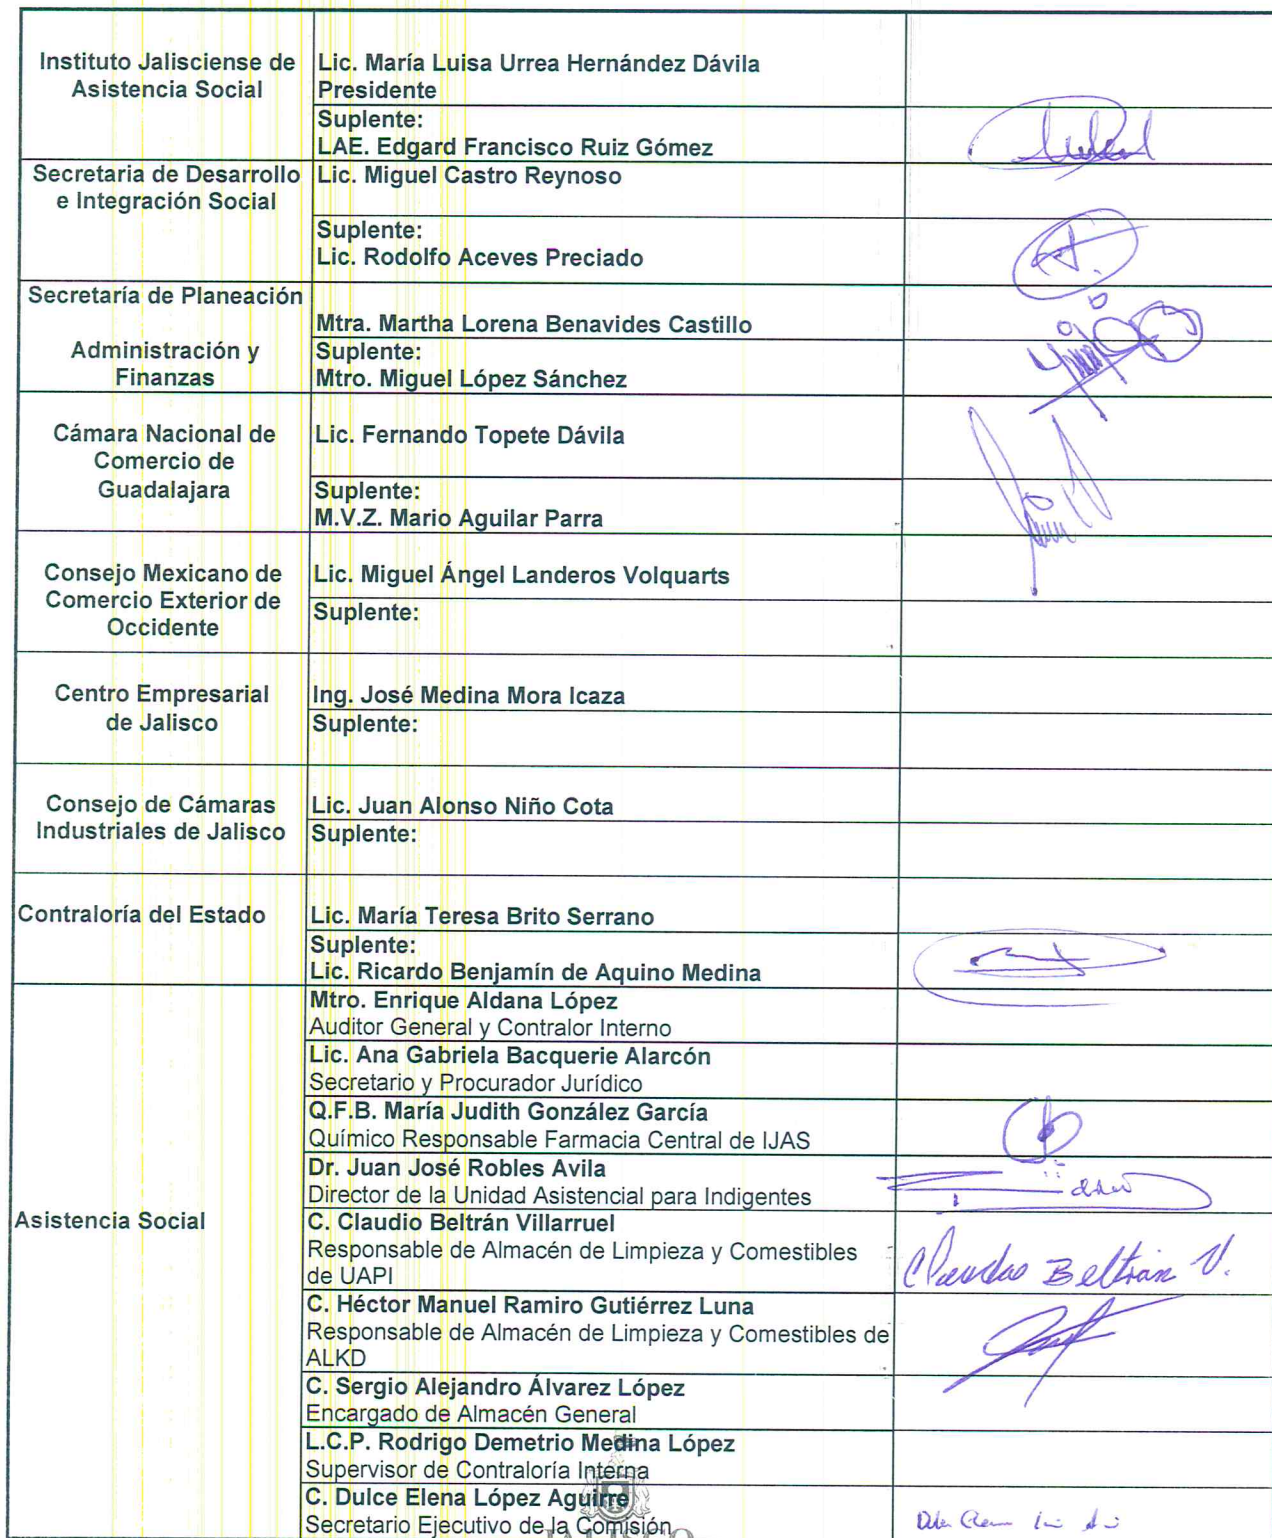 Instituto Jalisciense de
Asistencia Social
Lic. María Luisa Urrea Hernández Dávila
Presidente
Suplente:
LAE. Edgard Francisco Ruiz Gómez
Secretaria de Desarrollo
e Integración Social
Lic. Miguel Castro Reynoso
Suplente:
Lic. Rodolfo Aceves Preciado
Secretaría de Planeación
Administración y
Finanzas
Mtra. Martha Lorena Benavides Castillo
Suplente:
Mtro. Miguel López Sánchez
Cámara Nacional de
Comercio de
Guadalajara
Lic. Fernando Topete Dávila
Suplente:
M.V.Z. Mario Aguilar Parra
Consejo Mexicano de
Comercio Exterior de
Occidente
Lic. Miguel Ángel Landeros Volquarts
Suplente:
Centro Empresarial
de Jalisco
Ing. José Medina Mora Icaza
Suplente:
Consejo de Cámaras
Industriales de Jalisco
Lic. Juan Alonso Niño Cota
Suplente:
Contraloría del Estado
Lic. María Teresa Brito Serrano
Suplente:
Lic. Ricardo Benjamín de Aquino Medina
Asistencia Social
Mtro. Enrique Aldana López
Auditor General y Contralor Interno
Lic. Ana Gabriela Bacquerie Alarcón
Secretario y Procurador Jurídico
Q.F.B. María Judith González García
Químico Responsable Farmacia Central de IJAS
Dr. Juan José Robles Avila
Director de la Unidad Asistencial para Indigentes
C. Claudio Beltrán Villarruel
Responsable de Almacén de Limpieza y Comestibles
de UAPI
Claudio Beltrán V.
C. Héctor Manuel Ramiro Gutiérrez Luna
Responsable de Almacén de Limpieza y Comestibles de
ALKD
C. Sergio Alejandro Álvarez López
Encargado de Almacén General
L.C.P. Rodrigo Demetrio Medina López
Supervisor de Contraloría Interna
C. Dulce Elena López Aguirre
Secretario Ejecutivo de la Comisión
JALISCO